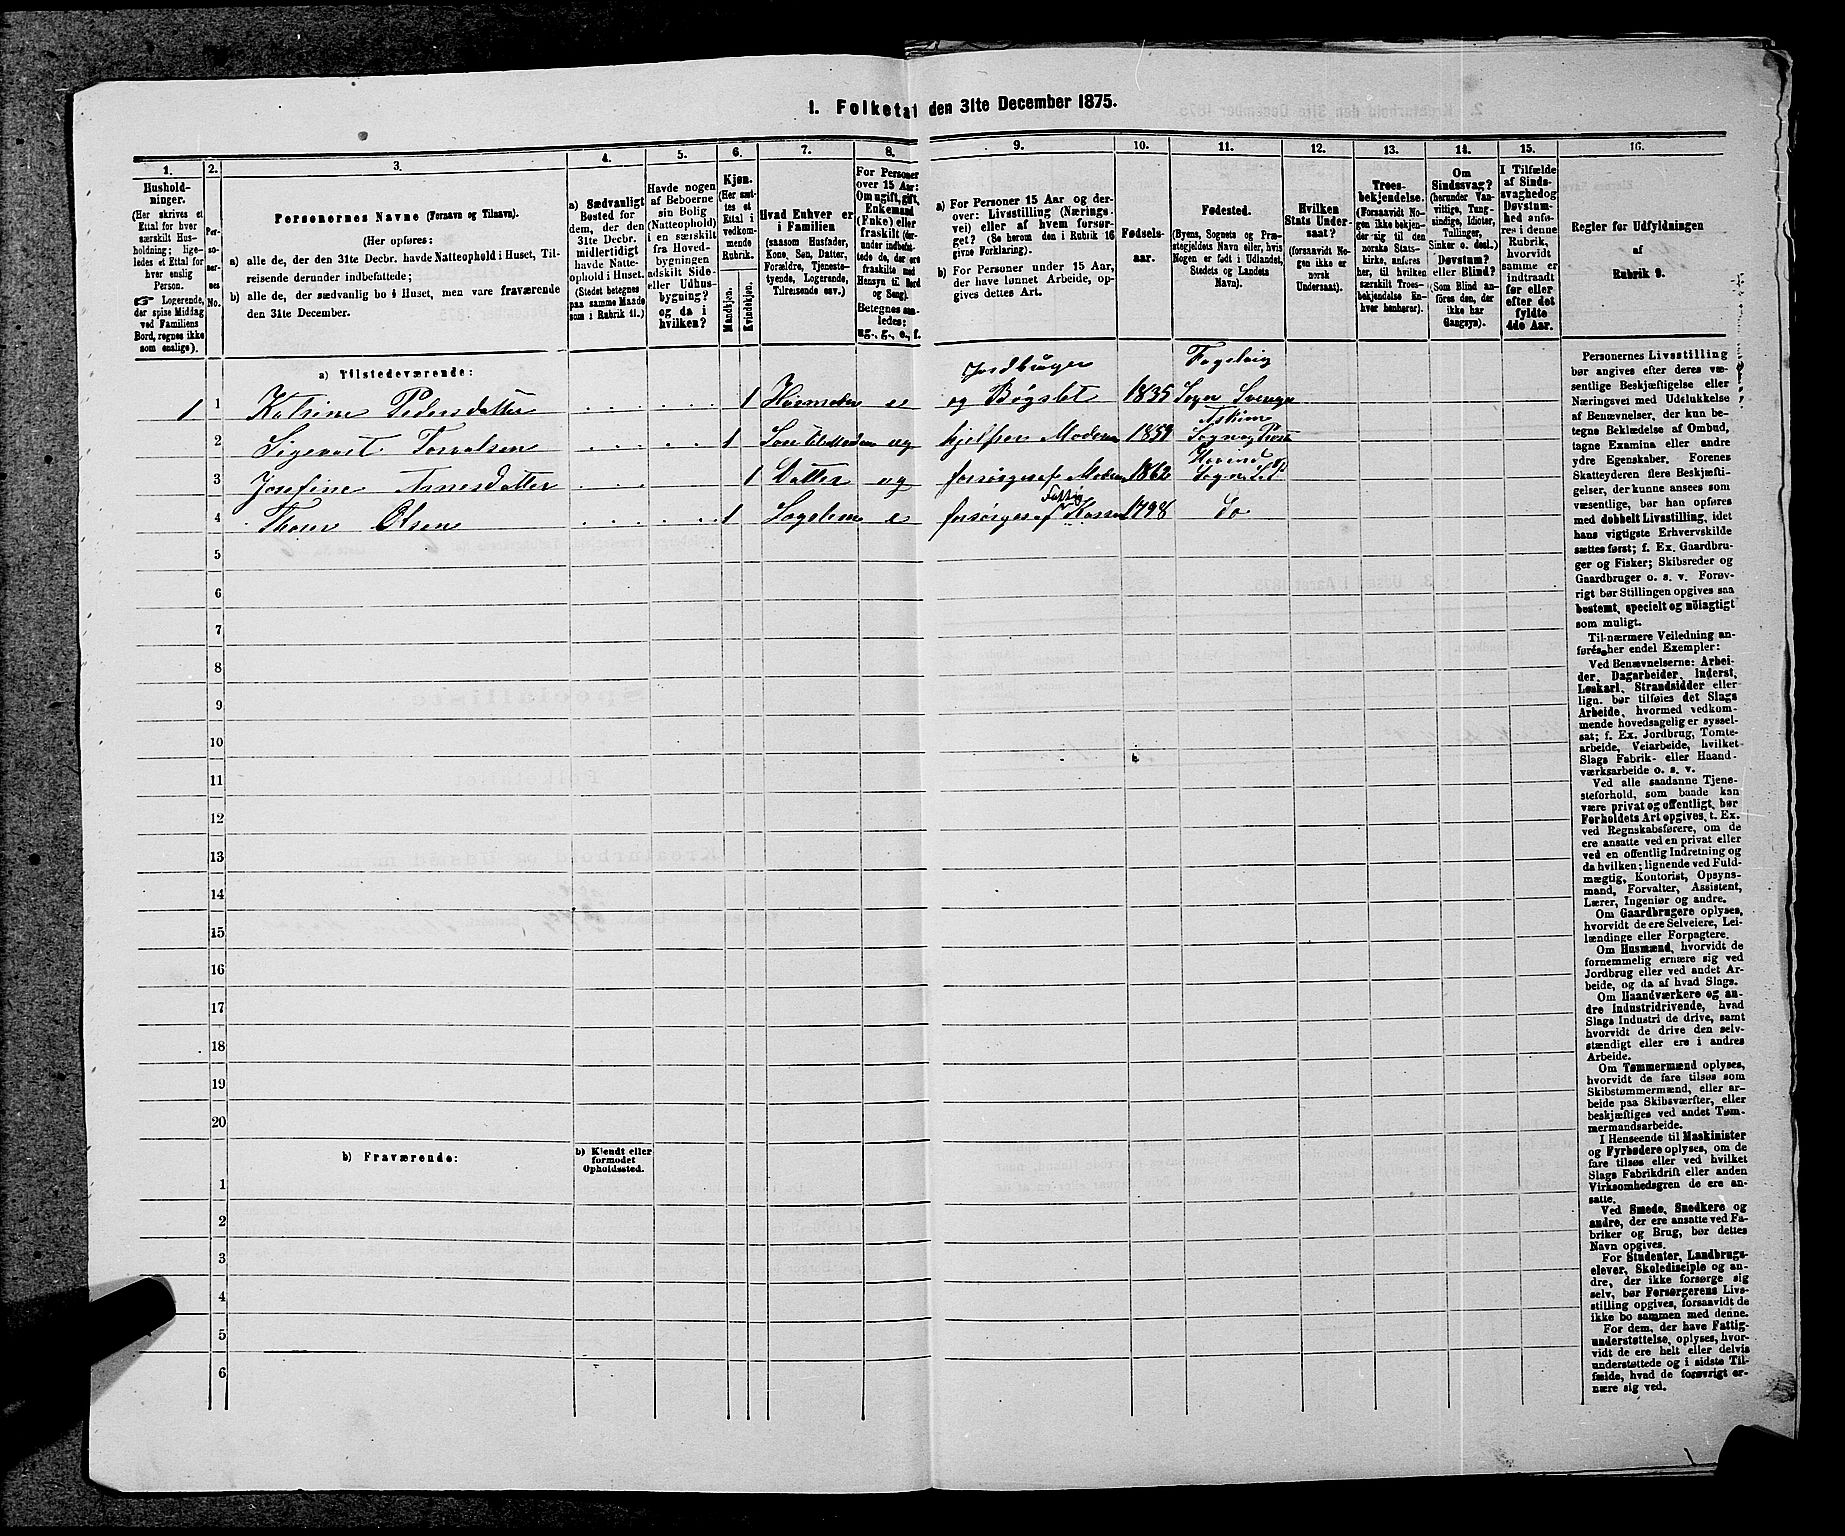 1. Folketal den 31te December 1875.
1.
2.
3.
4.
5.
6.
7.
8.
9.
10.
11.
12.
13.
14.
15.
16.
Hushold-
ninger.
(Her skrives et
Ettal for hver
særskilt Hus-
holdning; lige-
ledes et Ettal for
hver enslig
Person.
Logerende,
der spise Middag
ved Familiens
Bord, regnes ikke
som enslige).
Per-
so-
ner-
nes
No.
Personernes Navne (Fornavn og Tilnavn).
(Her opføres:
a) alle de, der den 31te Decbr. havde Natteophold i Huset, Til-
reisende derunder indbefattede;
b) alle de, der sædvanlig bo i Huset, men vare fraværende
den 31te December.
a) Sædvanligt
Bosted for
dem, der den
31te Decbr.
midlertidigt
havde Natte-
ophold i Huset.
(Stedet betegnes
paa samme Maade
som i Rubrik 11.)
Havde nogen
af Beboerne
sin Bolig
(Natteophold)
i en særskilt
fra Hoved-
bygningen
adskilt Side-
eller Udhus-
bygning?
og da i
hvilken?
Kjøn.
(Her sæt-
tes et
Ettal i
vedkom-
mende
Rubrik.
Mandkjøn.
Kvindekjøn.
Hvad Enhver er
i Familien
(saasom Husfader,
Kone, Søn, Datter,
Forældre, Tjeneste-
tyende, Logerende,
Tilreisende osv.)
For Personer
over 15 Aar:
Om ugift, gift,
Enkemand
(Enke) eller
fraskilt (der-
under indbefat-
tede de, der ere
fraskilte med
Hensyn til Bord
og Seng).
Betegnes saa-
ledes:
ug., g., e., f.
a) For Personer 15 Aar og der-
over: Livsstilling (Nærings-
vei) eller af hvem forsør-
get? (Se herom den i Rubrik 16
givne Forklaring).
b) For Personer under 15 Aar,
der have lønnet Arbeide, op-
gives dettes Art.
Fødsels-
aar.
Fødested.
(Byens, Sognets og Præ-
stegjeldets Navn eller, hvis
Nogen er født i Udlandet,
Stedets og Landets
Navn).
Hvilken
Stats Under-
saat?
(forsaavidt No-
gen ikke er
norsk
Undersaat).
Troes-
bekjendelse.
(Forsaavidt No-
gen ikke bekjen-
der sig til den
norske Stats-
kirke, anføres
her, til hvilken
særskilt Troes-
bekjendelse En-
hver henhører).
Om
Sindssvag?
(herunder Van-
vittige, Tung-
sindige, Idioter,
Tullinger,
Sinker o. desl.)
Døvstum?
eller Blind?
(Som Blind an-
føres den, der
ikke har
Gangsyn).
I Tilfælde
af Sinds-
svaghed og
Døvstum-
hed anfø-
res i denne
Rubrik,
hvorvidt
samme er
indtraadt
før eller
efter det
fyldte
4de Aar.
Regler for Udfyldningen
af
Rubrik 9.
a) Tilstedeværende:
Jordbruger
Fogelvig
1 1 Katrine Pedersdatter 1 Husmoder e og Bøgslet 1835 Sogn Sverige
Askim
2 Sigevart Torvalsen 1 Søn til Moderen ug hjelper Moderen 1859 Sogn og Præst
Hovind
3 Josefine Arnesdatter 1 Datter ug forsørges af Moderen 1862 Sogn
Fattig
4 Thour Olsen 1 Logerende e forsørges af Kassen 1798 Do
5
6
7
8
9
10
11
12
13
14
15
16
17
18
19
20
b) Fraværende:
b) Kjendt eller
formodet
Opholdssted.
1
2
3
4
5
6
Personernes Livsstilling
bør angives efter deres væ-
sentlige Beskjæftigelse eller
Næringsvei med Udelukkelse
af Benævnelser, der kun be-
tegne Beklædelse af Ombud,
tagne Examina eller andre
ydre Egenskaber. Forenes
Skatteyderen flere Beskjæfti-
gelser, der kunne ansees som
væsentlige, bør han opføres
med dobbelt Livsstilling, idet
hans vigtigste Erhvervskilde
sættes først; f. Ex. Gaardbru-
ger og Fisker; Skibsreder og
Gaardbruger o. s. v. Forøv-
rigt bør Stillingen opgives saa
bestemt, specielt og nøiagtigt
som muligt.
Til nærmere Veiledning an-
føres her endel Exempler:
Ved Benævnelserne: Arbei-
der, Dagarbeider, Inderst,
Løskarl, Strandsidder eller
lign. bør tilføies det Slags
Arbeide, hvormed vedkom-
mende hovedsagelig er syssel-
sat; f. Ex. Jordbrug, Tomte-
arbeide, Veiarbeide, hvilket
Slags Fabrik- eller Haand-
værksarbeide o. s. v.
Ved alle saadanne Tjene-
steforhold, som baade kan
være privat og offentligt, bør
Forholdets Art opgives, t. Ex.
ved Regnskabsførere, om de
ere ansatte ved en privat eller
ved en offentlig Indretning og
da hvilken; lignende ved Fuld-
mægtig, Kontorist, Opsyns-
mand, Forvalter, Assistent,
Lærer, Ingeniør og andre.
Om Gaardbrugere oplyses,
hvorvidt de ere Selveiere, Lei-
lændinge eller Forpagtere.
Om Husmænd, hvorvidt de
fornemmelig ernære sig ved
Jordbrug eller ved andet Ar-
beide, og da af hvad Slags.
Om Haandværkere og an-
dre Industridrivende, hvad
Slags Industri de drive, samt
hvorvidt de drive den selv-
stændigt eller ere i andres
Arbeide.
Om Tømmermænd oplyses,
hvorvidt de fare tilsøs som
Skibstømmermænd, eller ar-
beide paa Skibsværfter, eller
beskjæftiges ved andet Tøm-
mermandsarbeide.
I Henseende til Maskinister
og Fyrbødere oplyses, om de
fare tilsøs eller ved hvilket
Slags Fabrikdrift eller anden
Virksomhedsgren de ere an-
satte.
Ved Smede, Snedkere og
andre, der ere ansatte ved Fa-
briker og Brug, bør dettes
Navn opgives.
For Studenter, Landbrugs-
elever, Skoledisciple og an-
dre, der ikke forsørge sig
selv, bør Forsørgerens Livs-
stilling opgives, forsaavidt de
ikke bo sammen med denne.
For dem, der have Fattig-
understøttelse, oplyses, hvor-
vidt de ere helt eller delvis
understøttede og i sidste Til-
fælde, hvad de forøvrigt er-
nære sig ved.